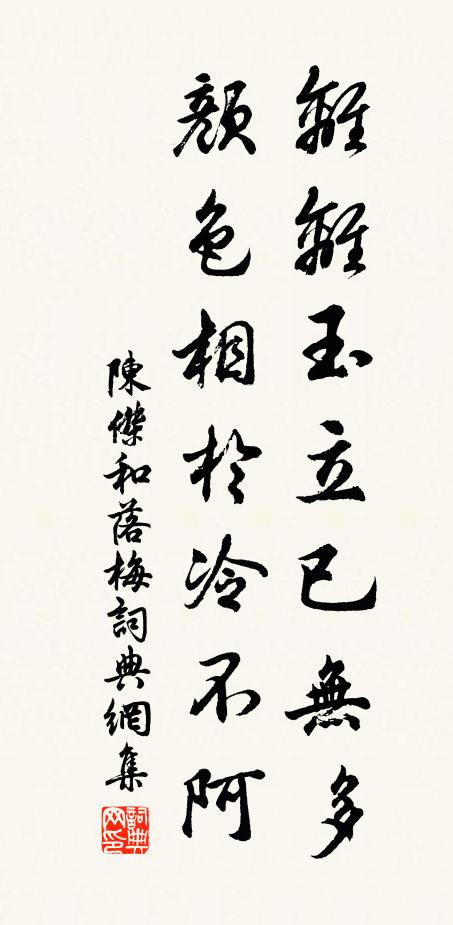 離離玉立已無多
顏色相於冷不阿
陳傑和落梅詞典網集
詞典網印